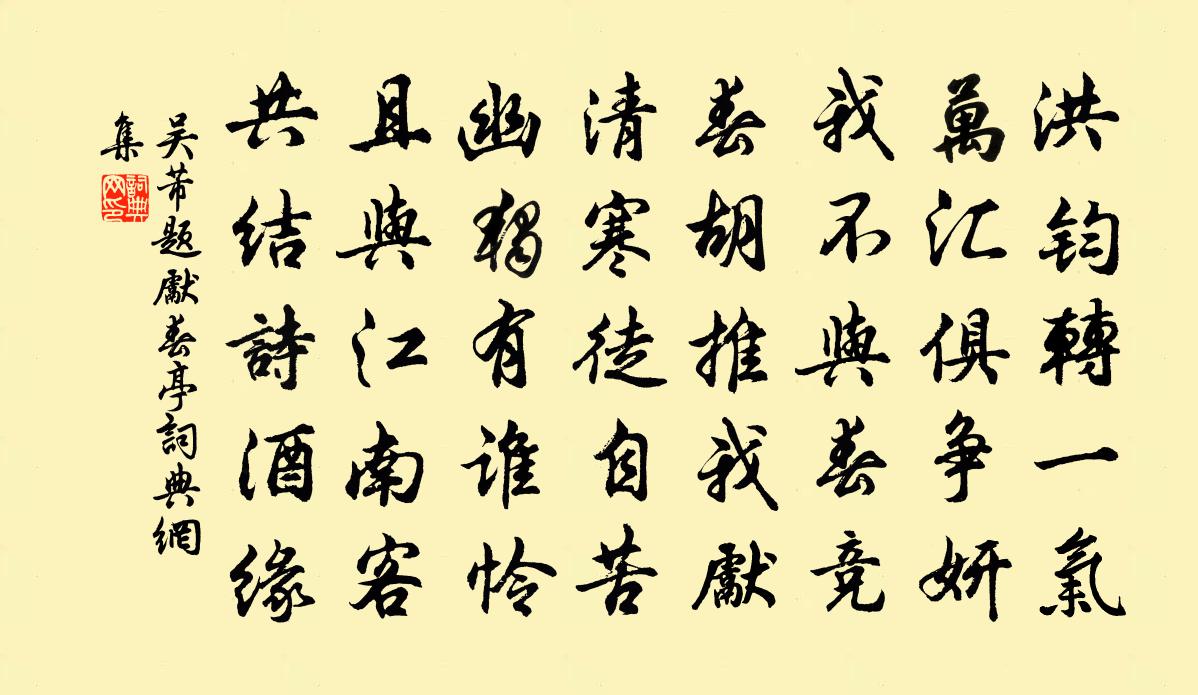 洪鈞轉一氣
萬汇俱爭妍
我不與春競
春胡推我獻
清寒徒自苦
幽獨有誰憐
且與江南客
共結詩酒緣
吴芾題獻春亭詞典網
集
詞典網印